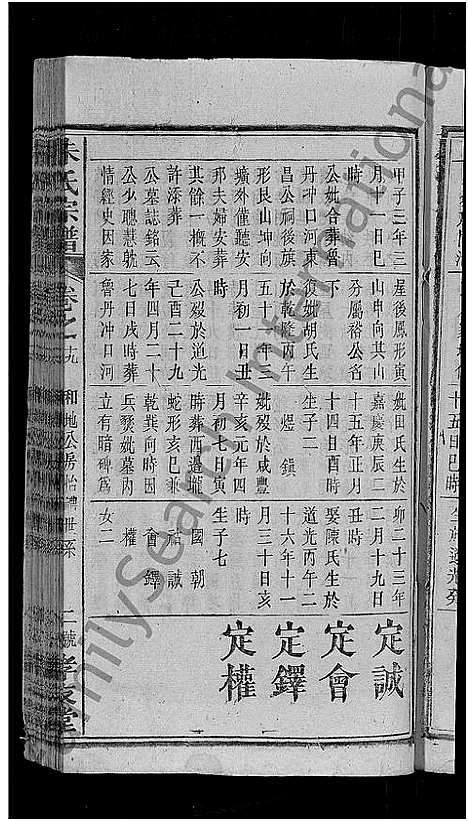 甲子三年三
月十一日巳
時
公妣合葬魯
丹冲口河東
昌公祠後旗
形艮山坤向
壙外僅聽安
邦夫婦安葬
其餘一概不
許添葬
公墓誌銘云
公少聰慧躭
情經史因家
屋後鳳形寅
山申向其山
分屬裕公名
下
復妣胡氏生
於乾隆丙午
五十一年三
月初一日丑
時
公歿於道光
己酉二十九
年四月二十
七日戌時葬
魯丹冲日河
妣田氏生於
嘉慶庚辰二
十五年正月
十四日酉時
生子二
煜 鎮
妣歿於咸豐
辛亥元年四
月初七日寅
時葬西邊壠
蛇形亥巳兼
乾巽向時因
兵燹妣墓內
立有暗碑為
卯二十三年
二月十九日
丑時
娶陳氏生於
道光丙午二
十六年十一
月三十日亥
時
生子七
國 朝
祜 誠
會 鐸
權
女二
定誠
定會
定鐸
定權
朱氏宗譜 卷之十九 和地公房怡禮世系 二號
FamilySearch International